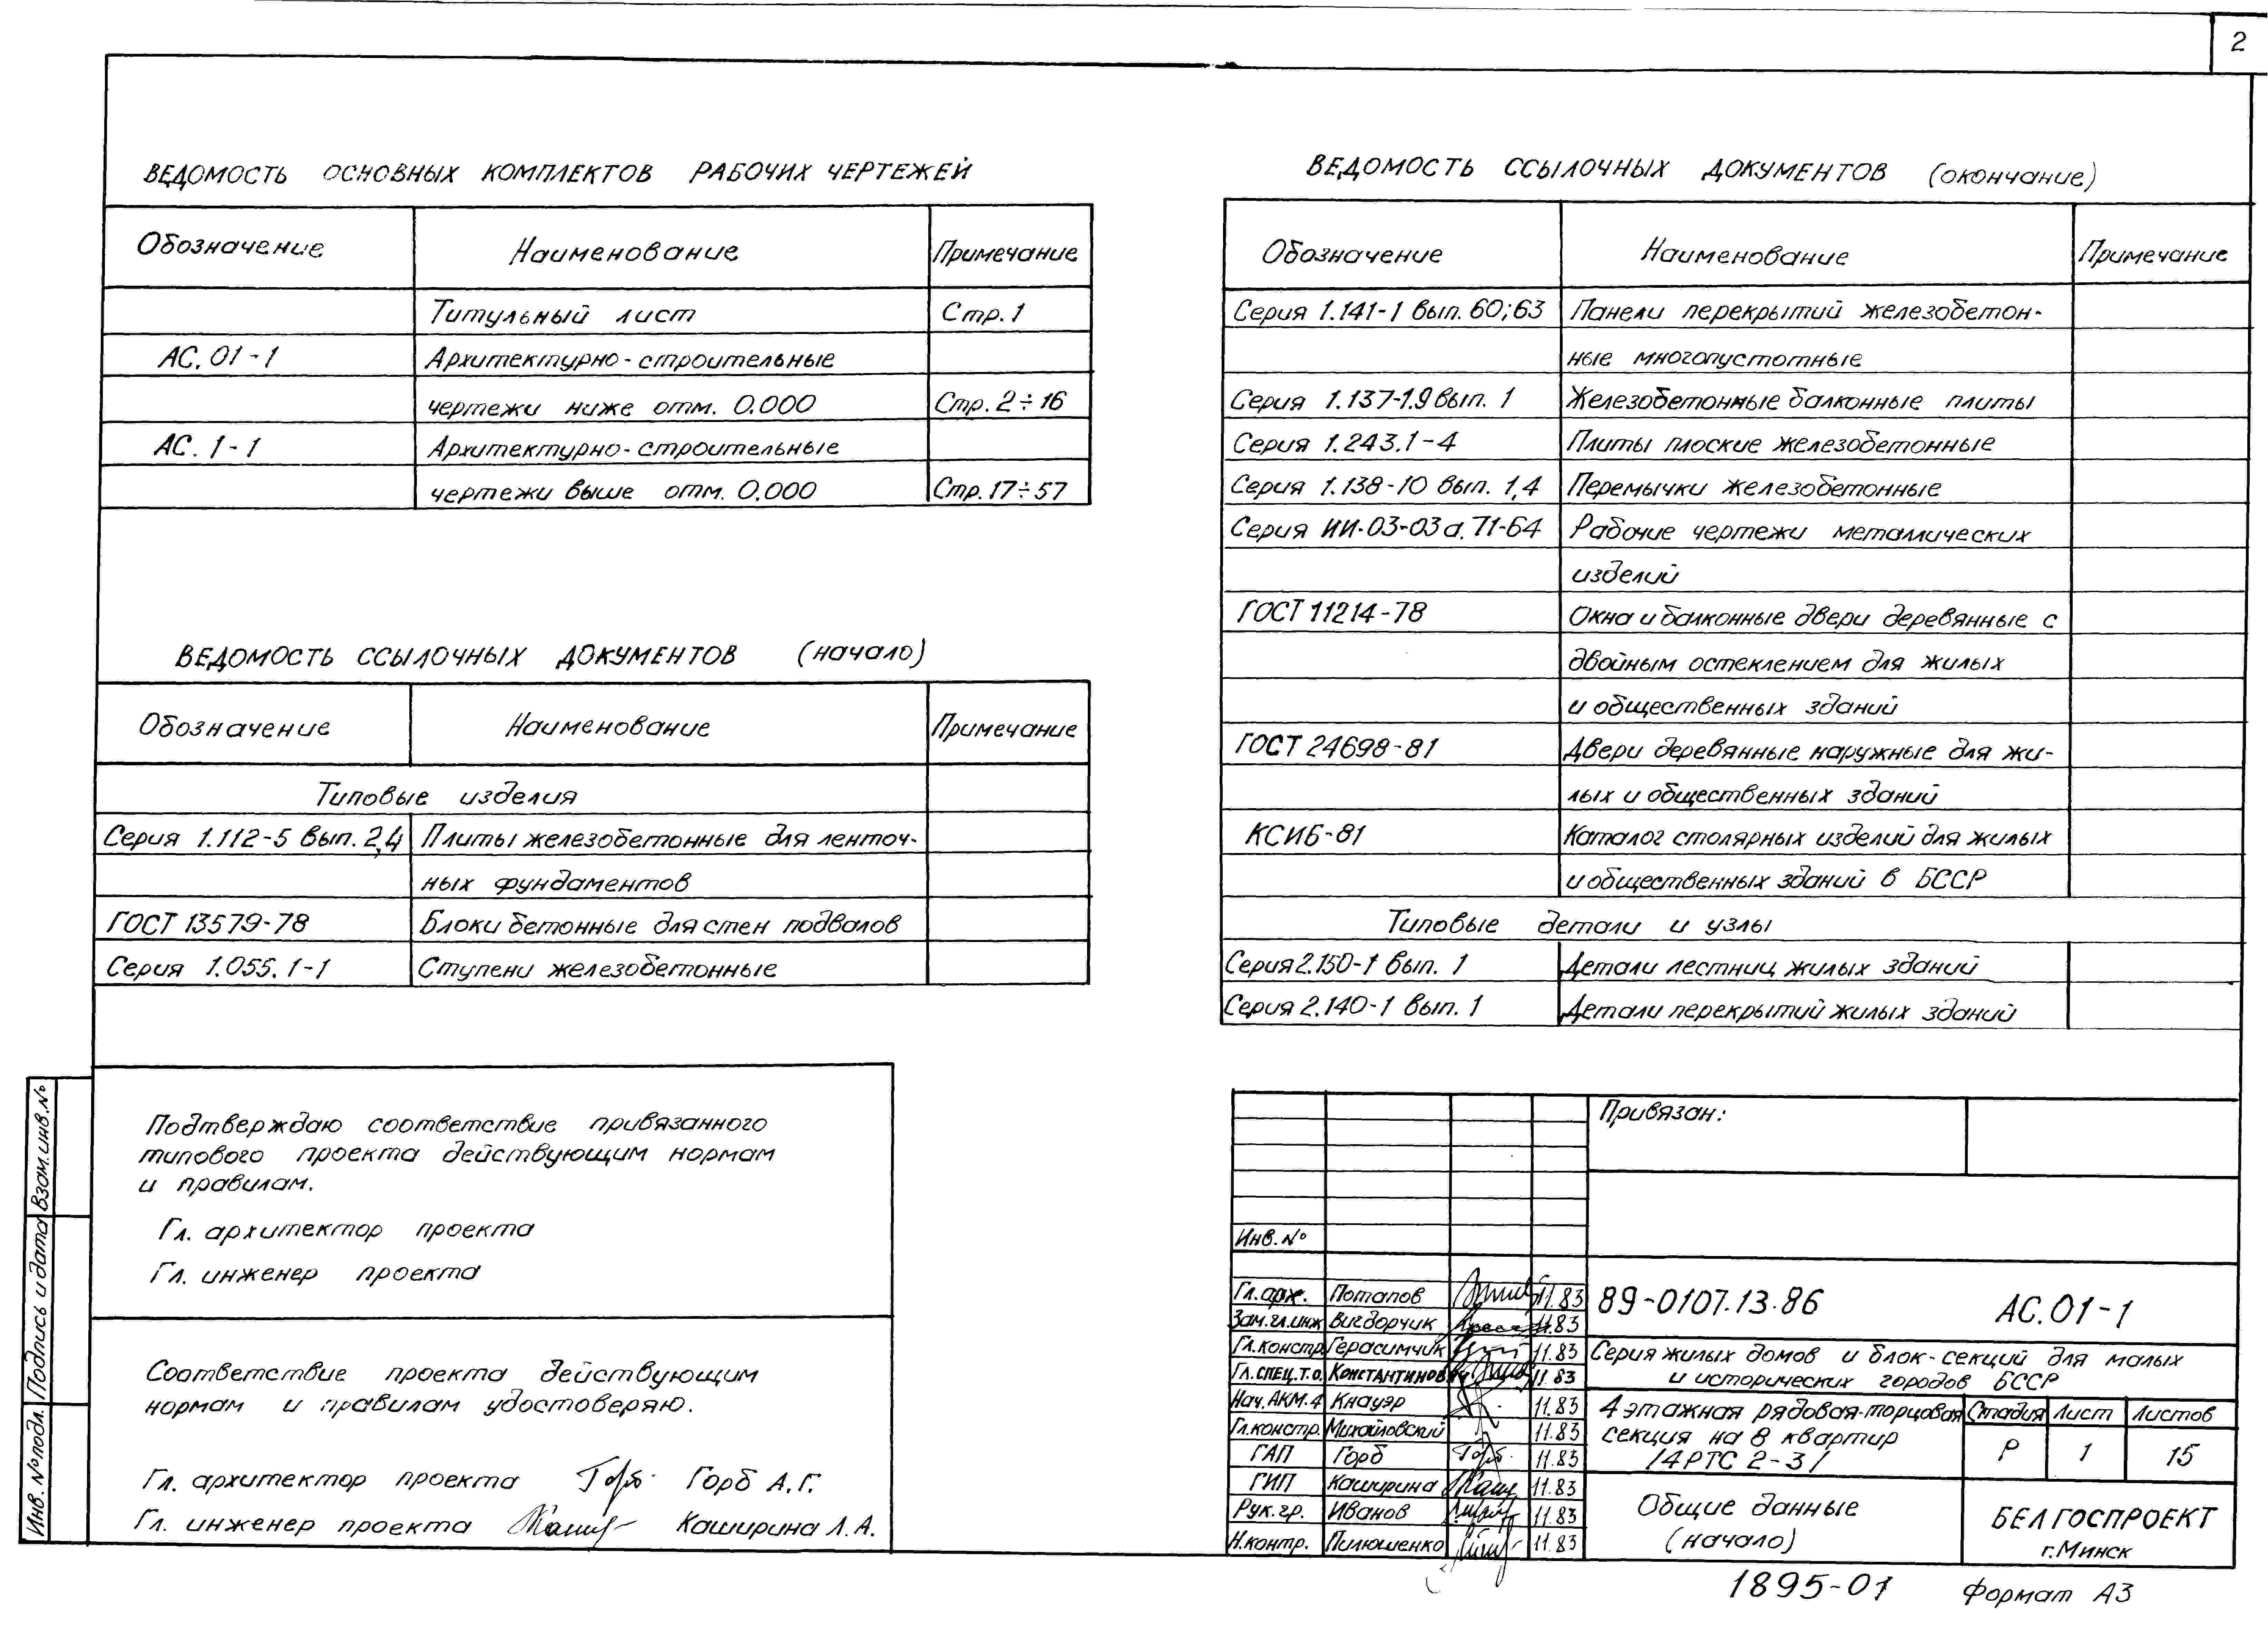 2
ВЕДОМОСТЬ ОСНОВНЫХ КОМПЛЕКТОВ РАБОЧИХ ЧЕРТЕЖЕЙ
Обозначение Наименование Примечание
Титульный лист Стр. 1
АС. 01-1 Архитектурно-строительные
чертежи ниже отм. 0.000 Стр. 2÷16
АС. 1-1 Архитектурно-строительные
чертежи выше отм. 0.000 Стр. 17÷57
ВЕДОМОСТЬ ССЫЛОЧНЫХ ДОКУМЕНТОВ (начало)
Обозначение Наименование Примечание
Типовые изделия
Серия 1.112-5 вып. 2,4 Плиты железобетонные для ленточ-
ных фундаментов
ГОСТ 13579-78 Блоки бетонные для стен подвалов
Серия 1.055.1-1 Ступени железобетонные
ВЕДОМОСТЬ ССЫЛОЧНЫХ ДОКУМЕНТОВ (окончание)
Обозначение Наименование Примечание
Серия 1.141-1 вып. 60;63 Панели перекрытий железобетон-
ные многопустотные
Серия 1.137-1.9 вып. 1 Железобетонные балконные плиты
Серия 1.243.1-4 Плиты плоские железобетонные
Серия 1.138-10 вып. 1,4 Перемычки железобетонные
Серия ИИ-03-03 а. 71-64 Рабочие чертежи металлических
изделий
ГОСТ 11214-78 Окна и балконные двери деревянные с
двойным остеклением для жилых
и общественных зданий
ГОСТ 24698-81 Двери деревянные наружные для жи-
лых и общественных зданий
КСИБ-81 Каталог столярных изделий для жилых
и общественных зданий в БССР
Типовые детали и узлы
Серия 2.150-1 вып. 1 Детали лестниц жилых зданий
Серия 2.140-1 вып. 1 Детали перекрытий жилых зданий
Подтверждаю соответствие привязанного
типового проекта действующим нормам
и правилам.
Гл. архитектор проекта
Гл. инженер проекта
Соответствие проекта действующим
нормам и правилам удостоверяю.
Гл. архитектор проекта Горб А.Г.
Гл. инженер проекта Каширина Л.А.
Взам. инв. №
Подпись и дата
Инв. № подл.
Привязан:
Инв. №
Гл. арх. Потапов 11.83
Зам. гл. инж Вигдорчик 11.83
Гл. констр. Герасимчик 11.83
Гл. спец. т.о. Константинов 11.83
Нач. АКМ. 4 Кнауэр 11.83
Гл. констр. Михайловский 11.83
ГАП Горб 11.83
ГИП Каширина 11.83
Рук. гр. Иванов 11.83
Н. контр. Пилюшенко 11.83
89-0107.13.86 АС. 01-1
Серия жилых домов и блок-секций для малых
и исторических городов БССР
4 этажная рядовая-торцовая
секция на 8 квартир
/4РТС 2-3/
Стадия Лист Листов
Р 1 15
Общие данные
(начало)
БЕЛГОСПРОЕКТ
г. Минск
1895-01 Формат А3